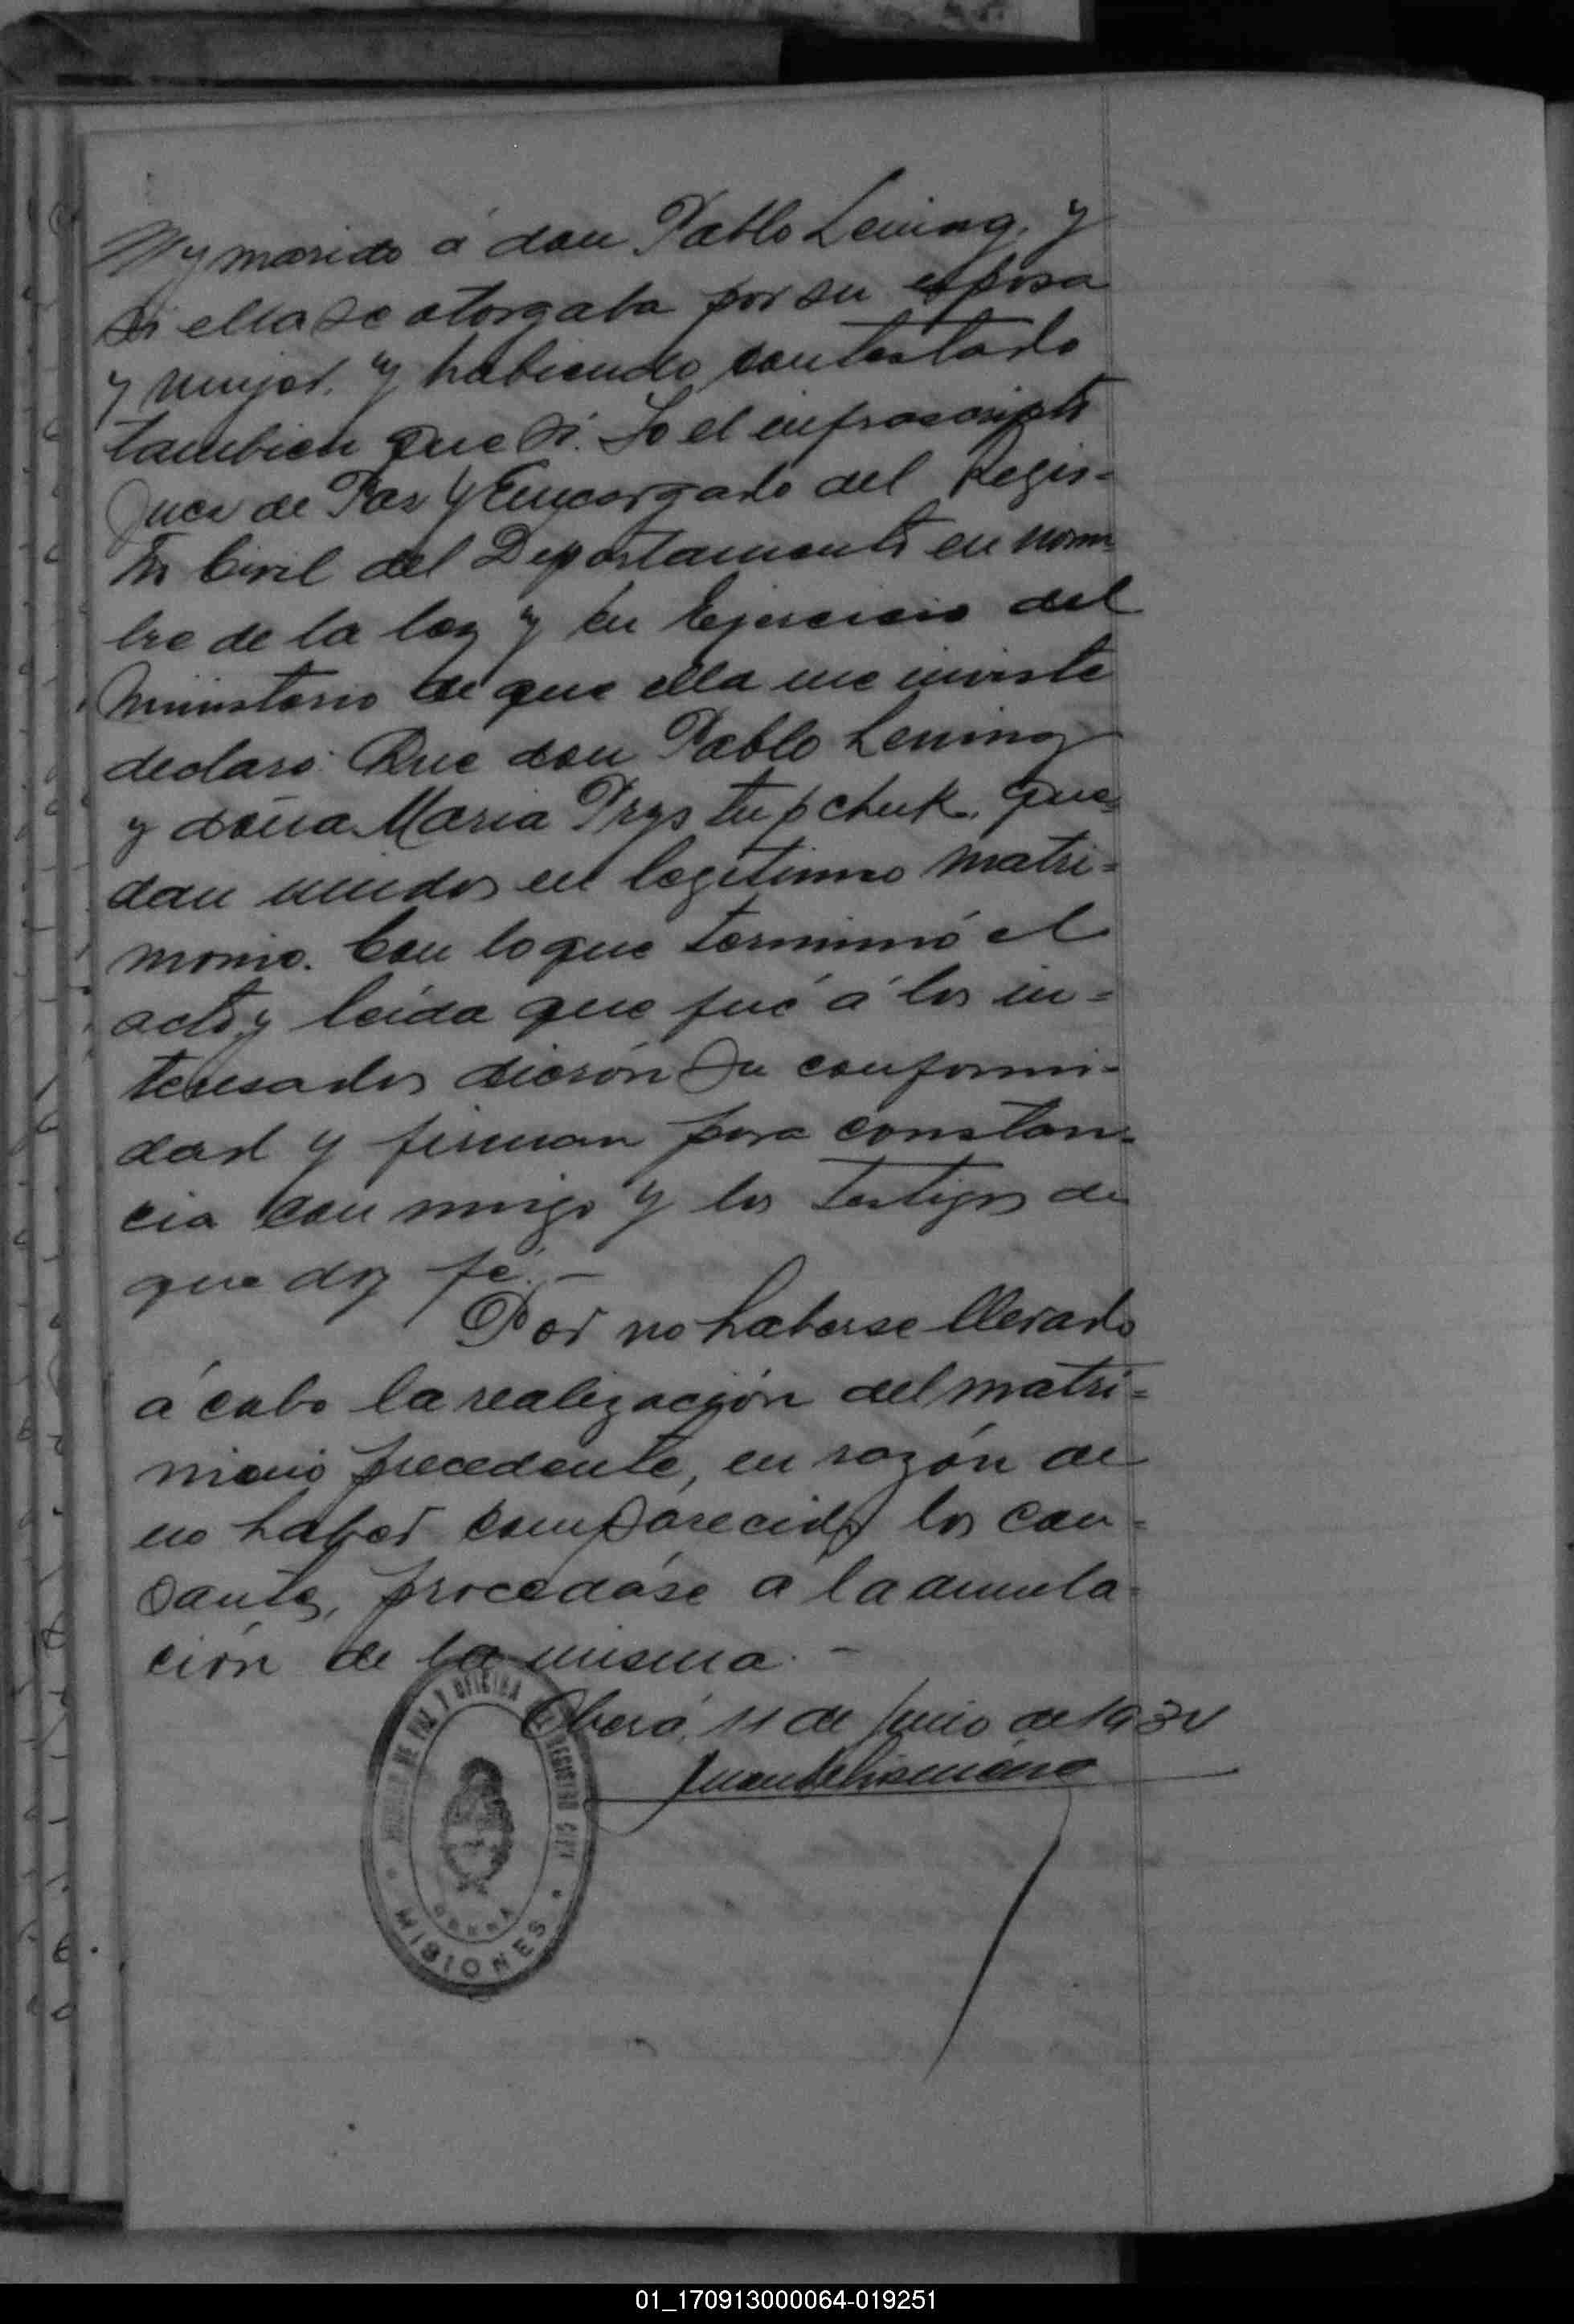 y marido á don Pablo Lening, y
si ella se otorgaba por su esposa
y mujer. y habiendo contestado
tambien que si. Yo el infrascripto
Juez de Paz y Encargado del Regis=
tro Civil del Departamento en nom
bre de la ley y en Ejercicio del
ministerio de que ella me inviste
declaro: Que don Pablo Lening
y doña Maria Prystupchuk, que=
dan unidos en legitimo matri=
monio. Con lo que terminó el
acto y leida que fué á los in=
teresados dierón su conformi=
dad y firman para constan=
cia con migo y los testigos de
que doy fé.—
Por no haberse llevado
á cabo la realización del matri=
monio precedente, en razón de
no haber comparecido los cau=
santes, procedáse a la anula=
ción de la misma.—
Oberá, 11 de Junio de 193
JUZGADO DE PAZ Y OFICINA DEL REGISTRO CIVIL
OBERA
MISIONES
01_170913000064-019251